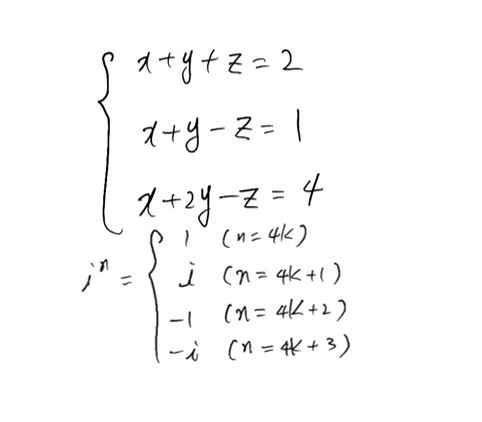 x+y+z=2
x+y-z=1
x+2y-z=4
iⁿ = { 1 (n=4k)
i (n=4k+1)
-1 (n=4k+2)
-i (n=4k+3)